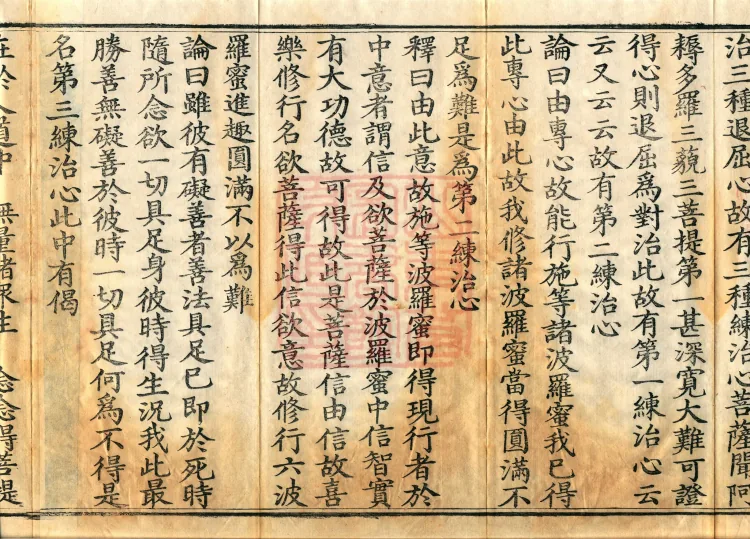 治三種退屈心故有三種練治心菩薩聞阿
耨多羅三藐三菩提第一甚深寬大難可證
得心則退屈爲對治此故有第一練治心云
云又云云故有第二練治心
論曰由專心故能行施等諸波羅蜜我已得
此專心由此故我修諸波羅蜜當得圓滿不
足爲難是爲第二練治心
釋曰由此意故施等波羅蜜即得現行者於
中意者謂信及欲菩薩於波羅蜜中信智實
有大功德故可得故此是菩薩信由信故喜
樂修行名欲菩薩得此信欲意故修行六波
羅蜜進趣圓滿不以爲難
論曰雖彼有礙善者善法具足已即於死時
隨所念欲一切具足身彼時得生況我此最
勝善無礙善於彼時一切具足何爲不得是
名第三練治心此中有偈
在於人道中 無量諸衆生 念念得菩提